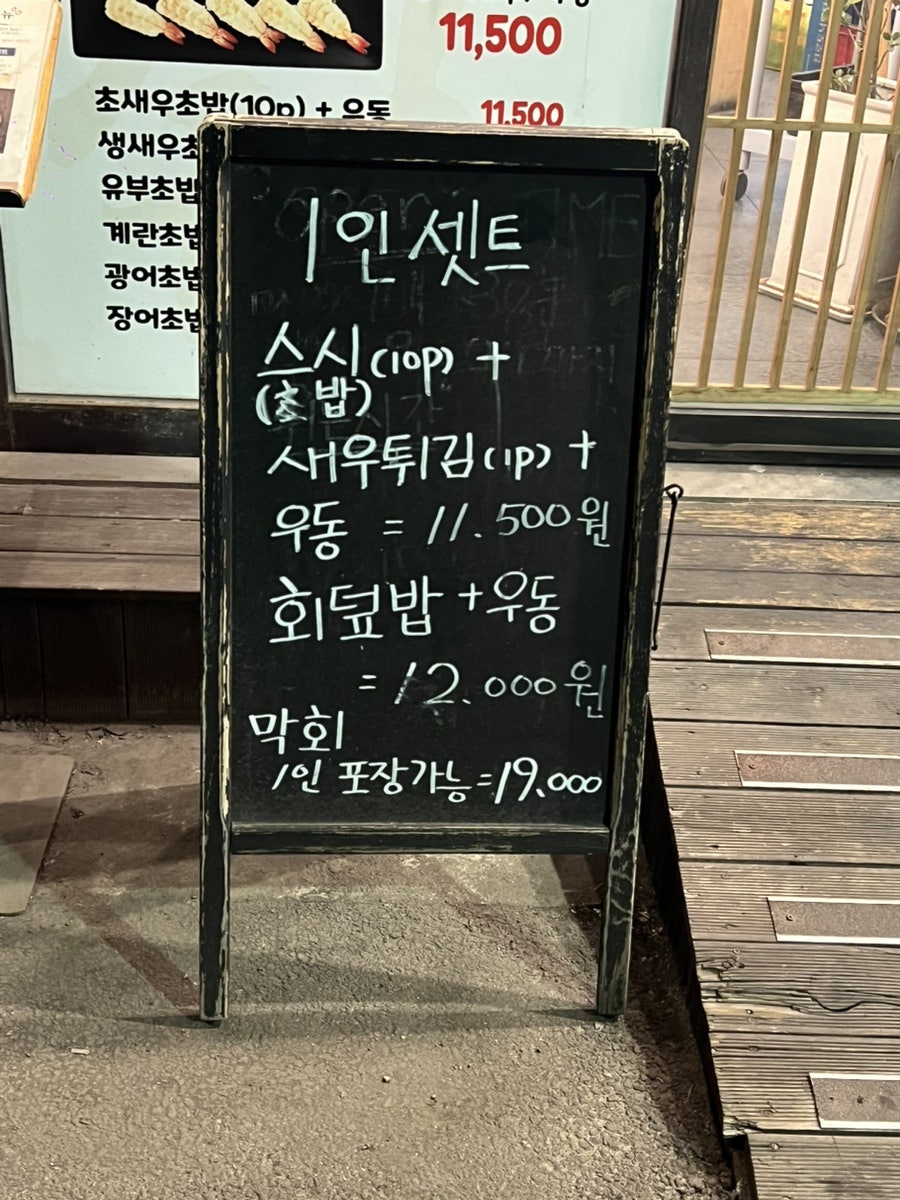 11,500
초새우초밥(10p) + 우동 11,500
생새우초
유부초밥
계란초밥
광어초밥
장어초밥
1인 셋트
스시(10p) +
(초밥)
새우튀김(1p) +
우동 = 11.500원
회덮밥 + 우동
= 12.000원
막회
1인 포장가능 = 19.000